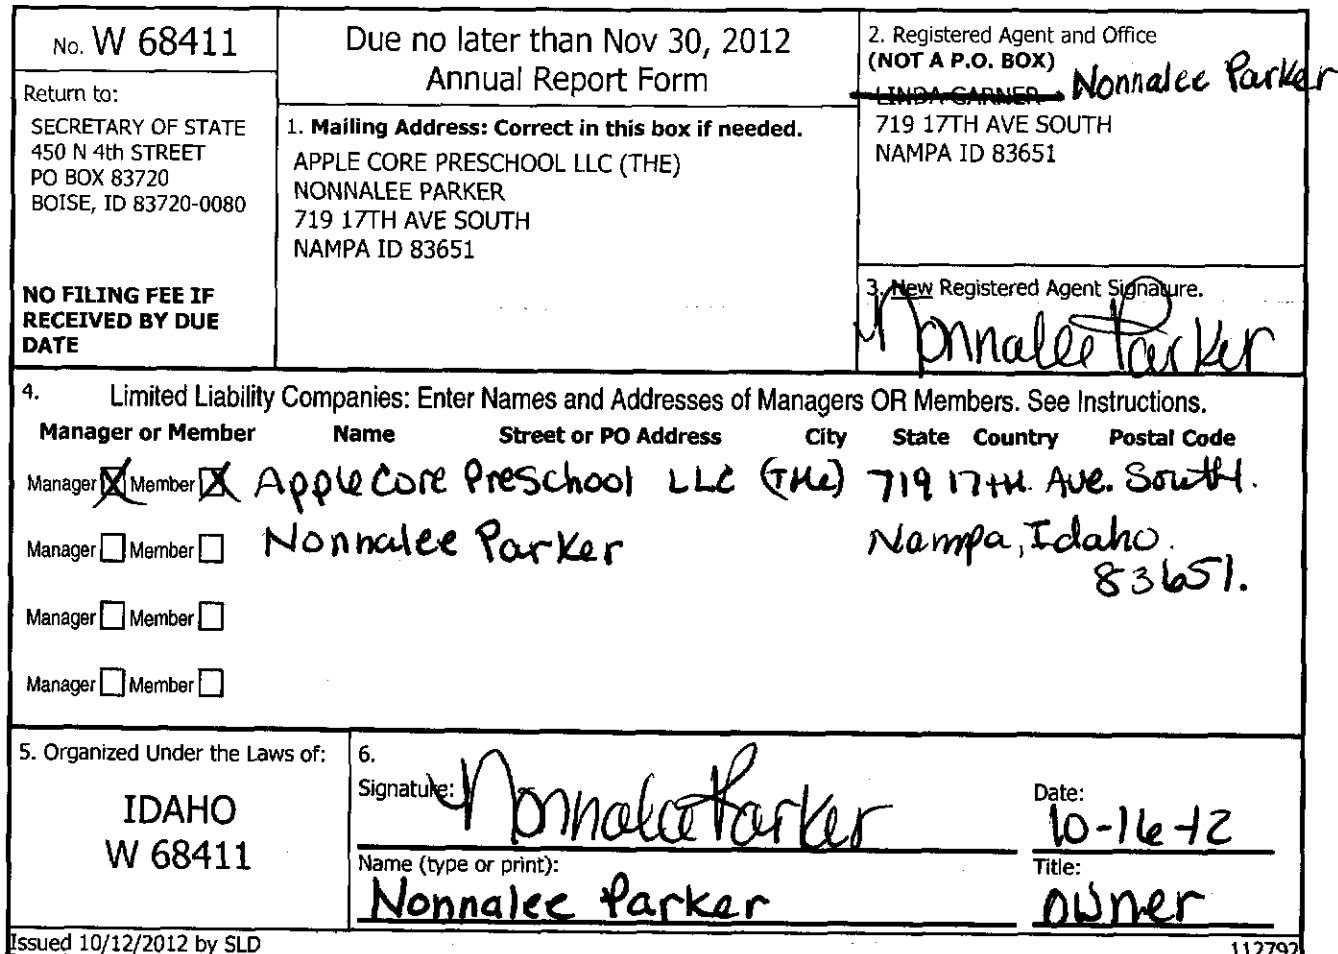 No. W 68411
Return to:
SECRETARY OF STATE
450 N 4th STREET
PO BOX 83720
BOISE, ID 83720-0080
NO FILING FEE IF
RECEIVED BY DUE
DATE
Due no later than Nov 30, 2012
Annual Report Form
1. Mailing Address: Correct in this box if needed.
APPLE CORE PRESCHOOL LLC (THE)
NONNALEE PARKER
719 17TH AVE SOUTH
NAMPA ID 83651
2. Registered Agent and Office
(NOT A P.O. BOX)
LINDA GARNER Nonnalee Parker
719 17TH AVE SOUTH
NAMPA ID 83651
3. New Registered Agent Signature.
Nonnalee Parker
4. Limited Liability Companies: Enter Names and Addresses of Managers OR Members. See Instructions.
Manager or Member Name Street or PO Address City State Country Postal Code
Manager Member Apple Core Preschool LLC (THe) 719 17TH. Ave. South.
Manager Member Nonnalee Parker Nampa, Idaho.
83651.
Manager Member
Manager Member
5. Organized Under the Laws of:
IDAHO
W 68411
6.
Signature: Nonnalee Parker
Date:
10-16-12
Name (type or print):
Nonnalee Parker
Title:
owner
Issued 10/12/2012 by SLD
112792